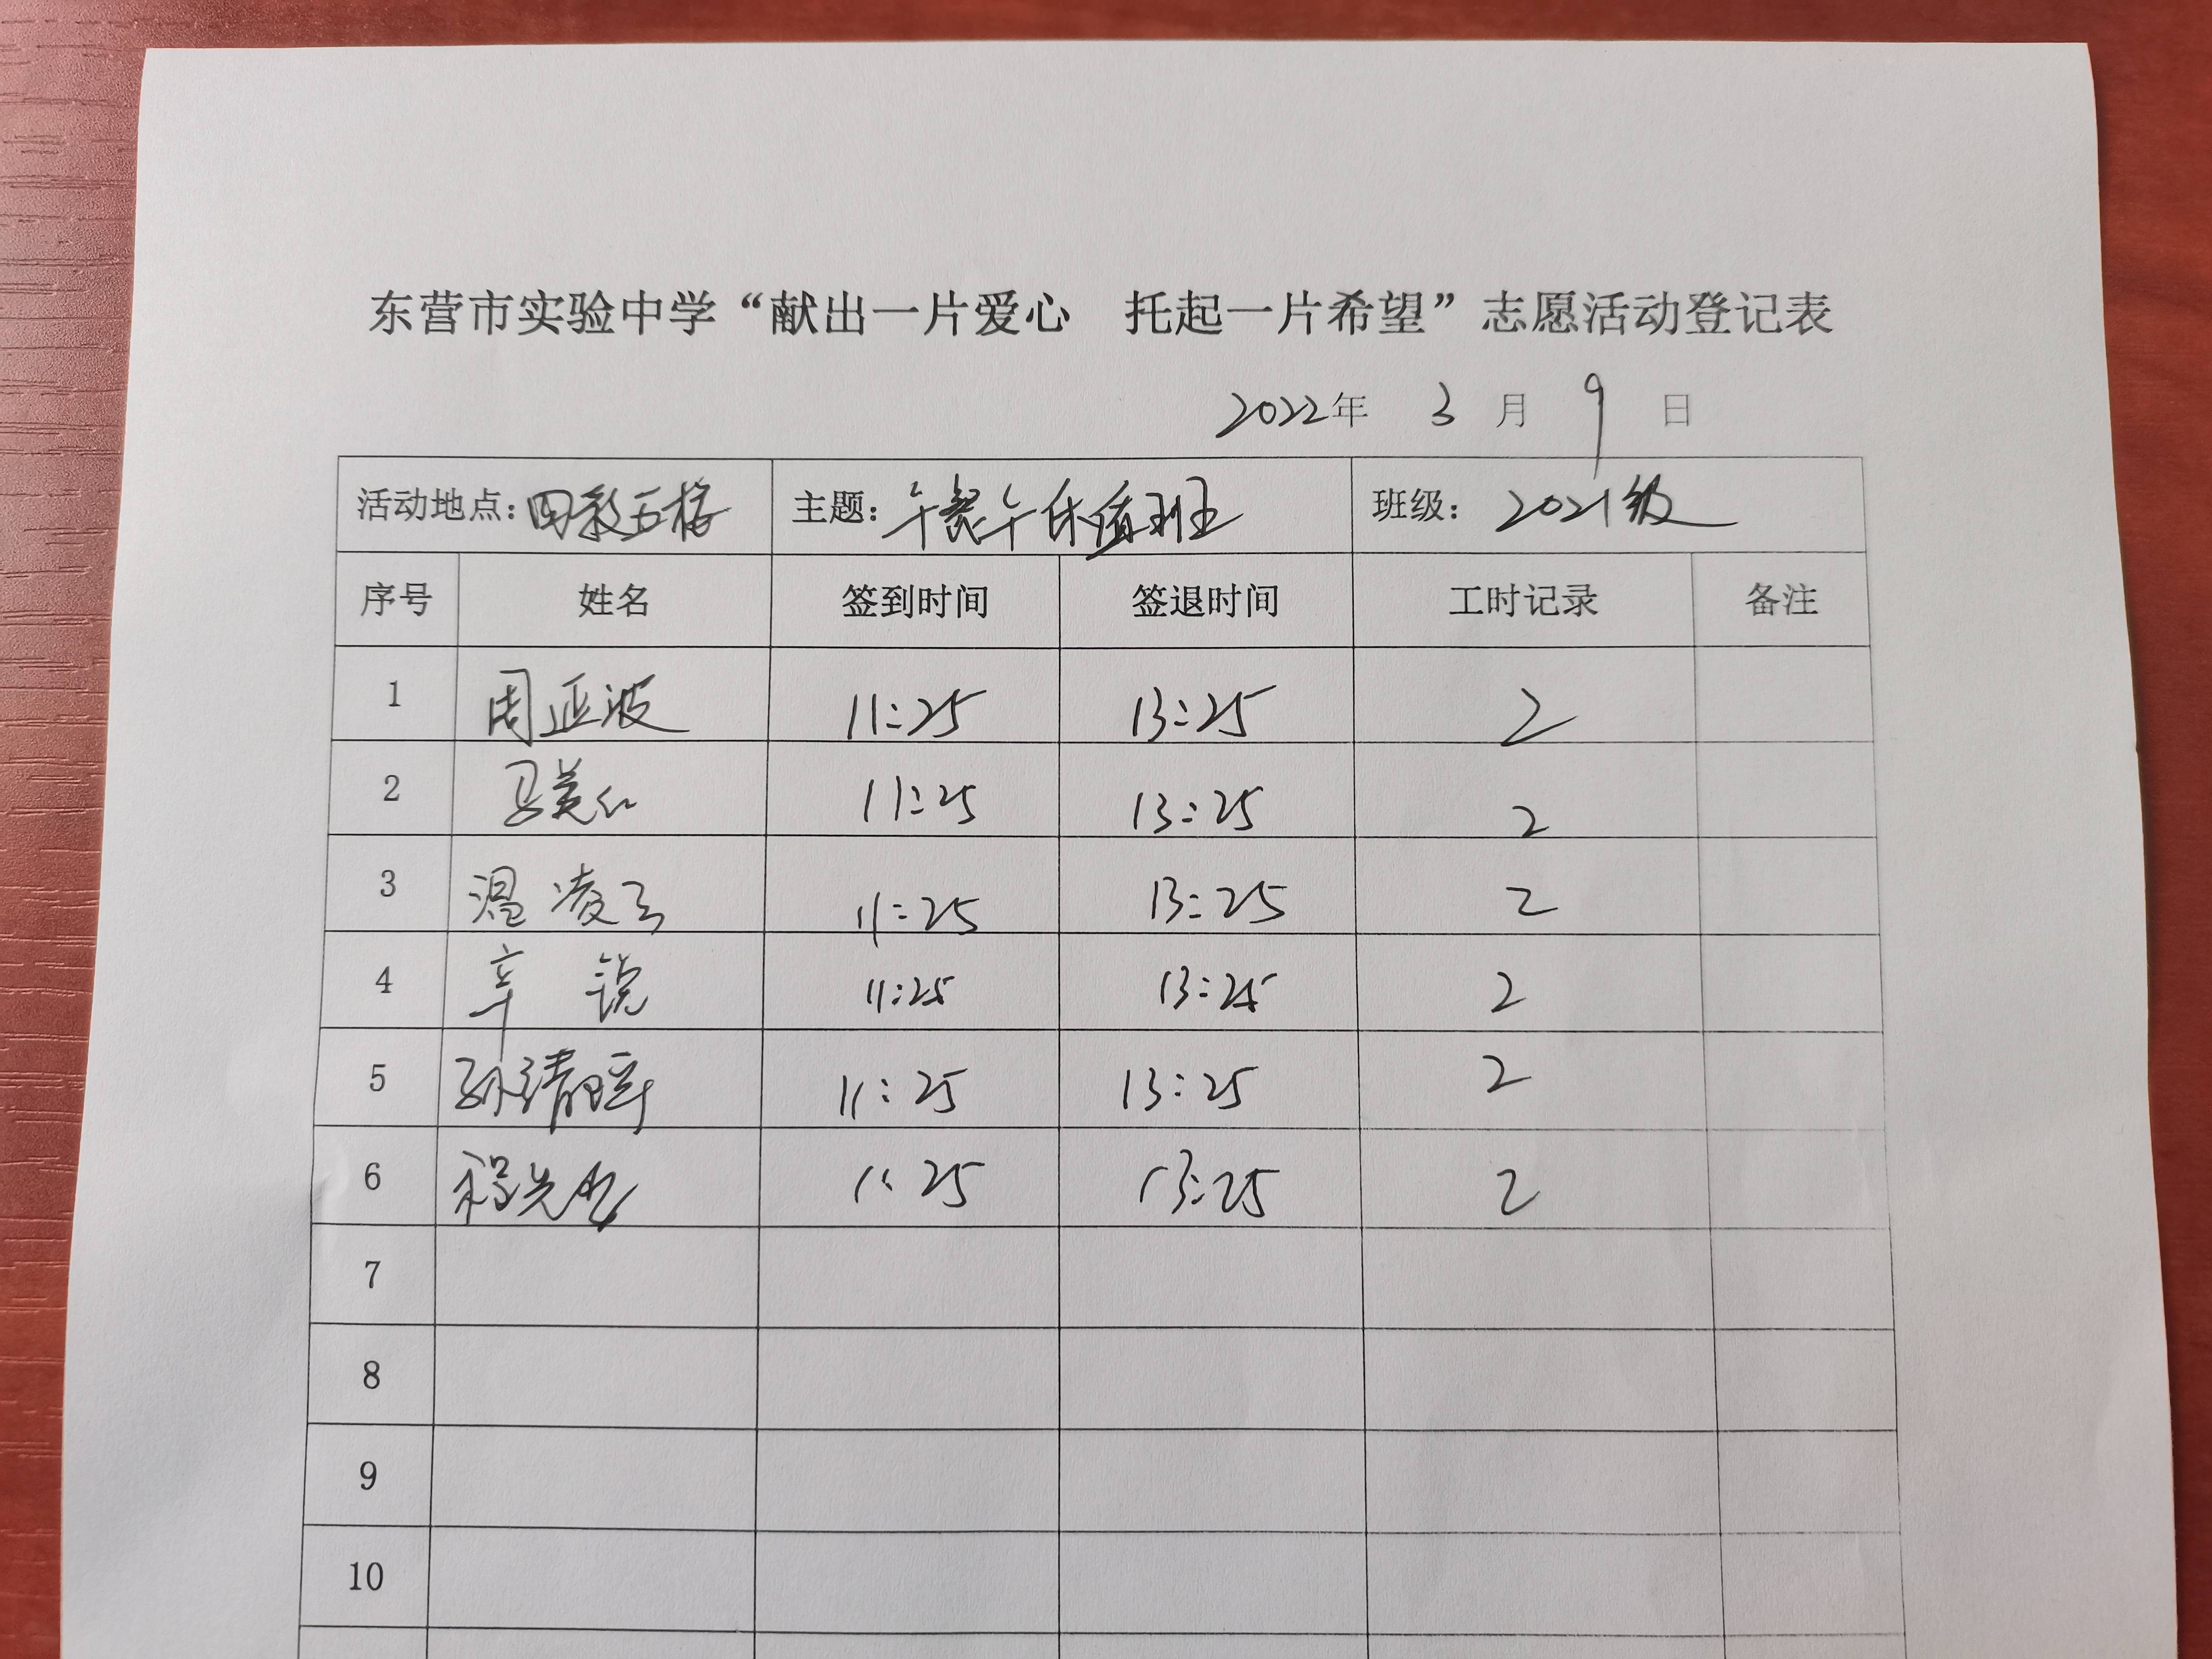 东营市实验中学“献出一片爱心 托起一片希望”志愿活动登记表
2022年 3 月 9 日
活动地点：四教五楼 主题：午餐午休值班 班级：2021级
序号 姓名 签到时间 签退时间 工时记录 备注
1 周亚波 11:25 13:25 2
2 马美红 11:25 13:25 2
3 温凌云 11:25 13:25 2
4 辛锐 11:25 13:25 2
5 孙靖晖 11:25 13:25 2
6 程先 11:25 13:25 2
7
8
9
10